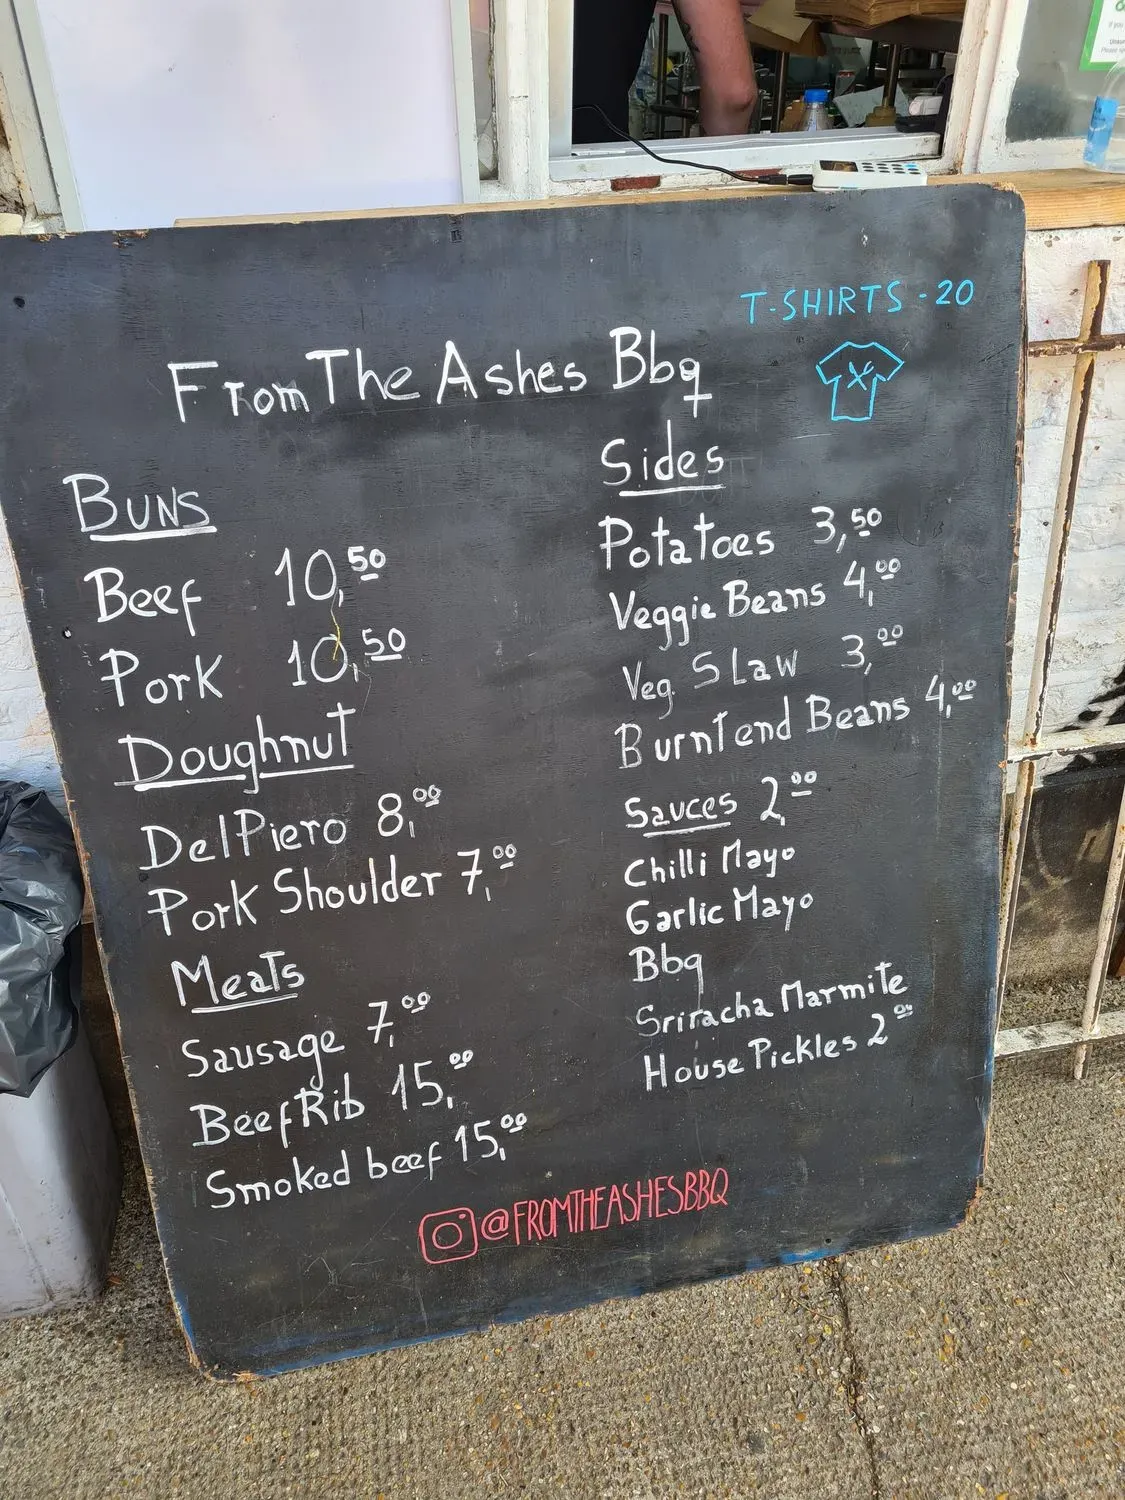 T-SHIRTS - 20
From The Ashes Bbq
Buns
Beef 10,50
Pork 10,50
Doughnut
Del Piero 8,00
Pork Shoulder 7,00
Meats
Sausage 7,00
Beef Rib 15,00
Smoked beef 15,00
Sides
Potatoes 3,50
Veggie Beans 4,00
Veg Slaw 3,00
Burnt end Beans 4,00
Sauces 2,00
Chilli Mayo
Garlic Mayo
Bbq
Sriracha Marmite
House Pickles 2,00
@FROMTHEASHESBBQ